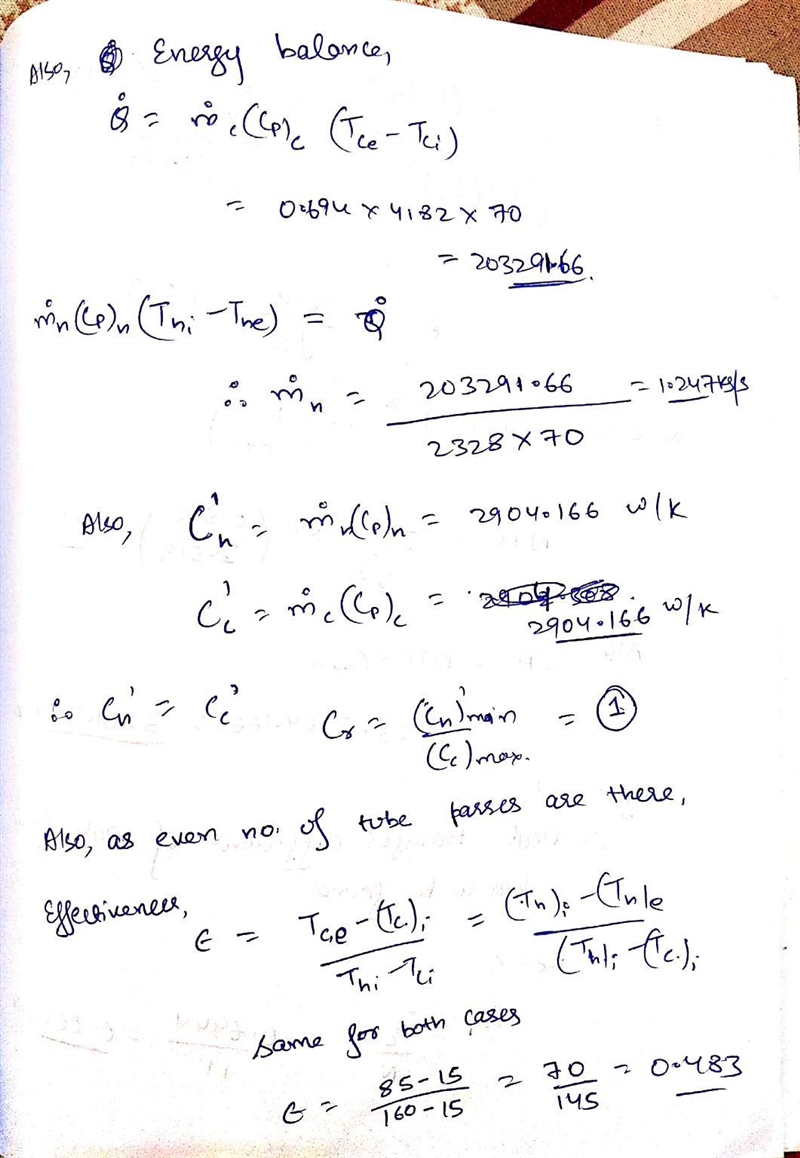 Also, Energy balance,
Q̇ = ṁc(Cp)c (Tce - Tci)
= 0.694 x 4182 x 70
= 203291.66.
ṁh(Cp)h (Thi - The) = Q̇
∴ ṁh = 203291.66 / 2328 x 70 = 1.247 kg/s
Also, C'h = ṁh(Cp)h = 2904.166 w/k
C'c = ṁc(Cp)c = 2904.166 w/k
∴ Ch' = Cc' Cr = (Ch)'min / (Cc)max. = 1
Also, as even no. of tube passes are there,
Effectiveness,
ϵ = Tce - (Tc)i / Thi - Tci = (Th)i - (Th)e / (Th)i - (Tc)i
same for both cases
ϵ = 85-15 / 160-15 = 70 / 145 = 0.483